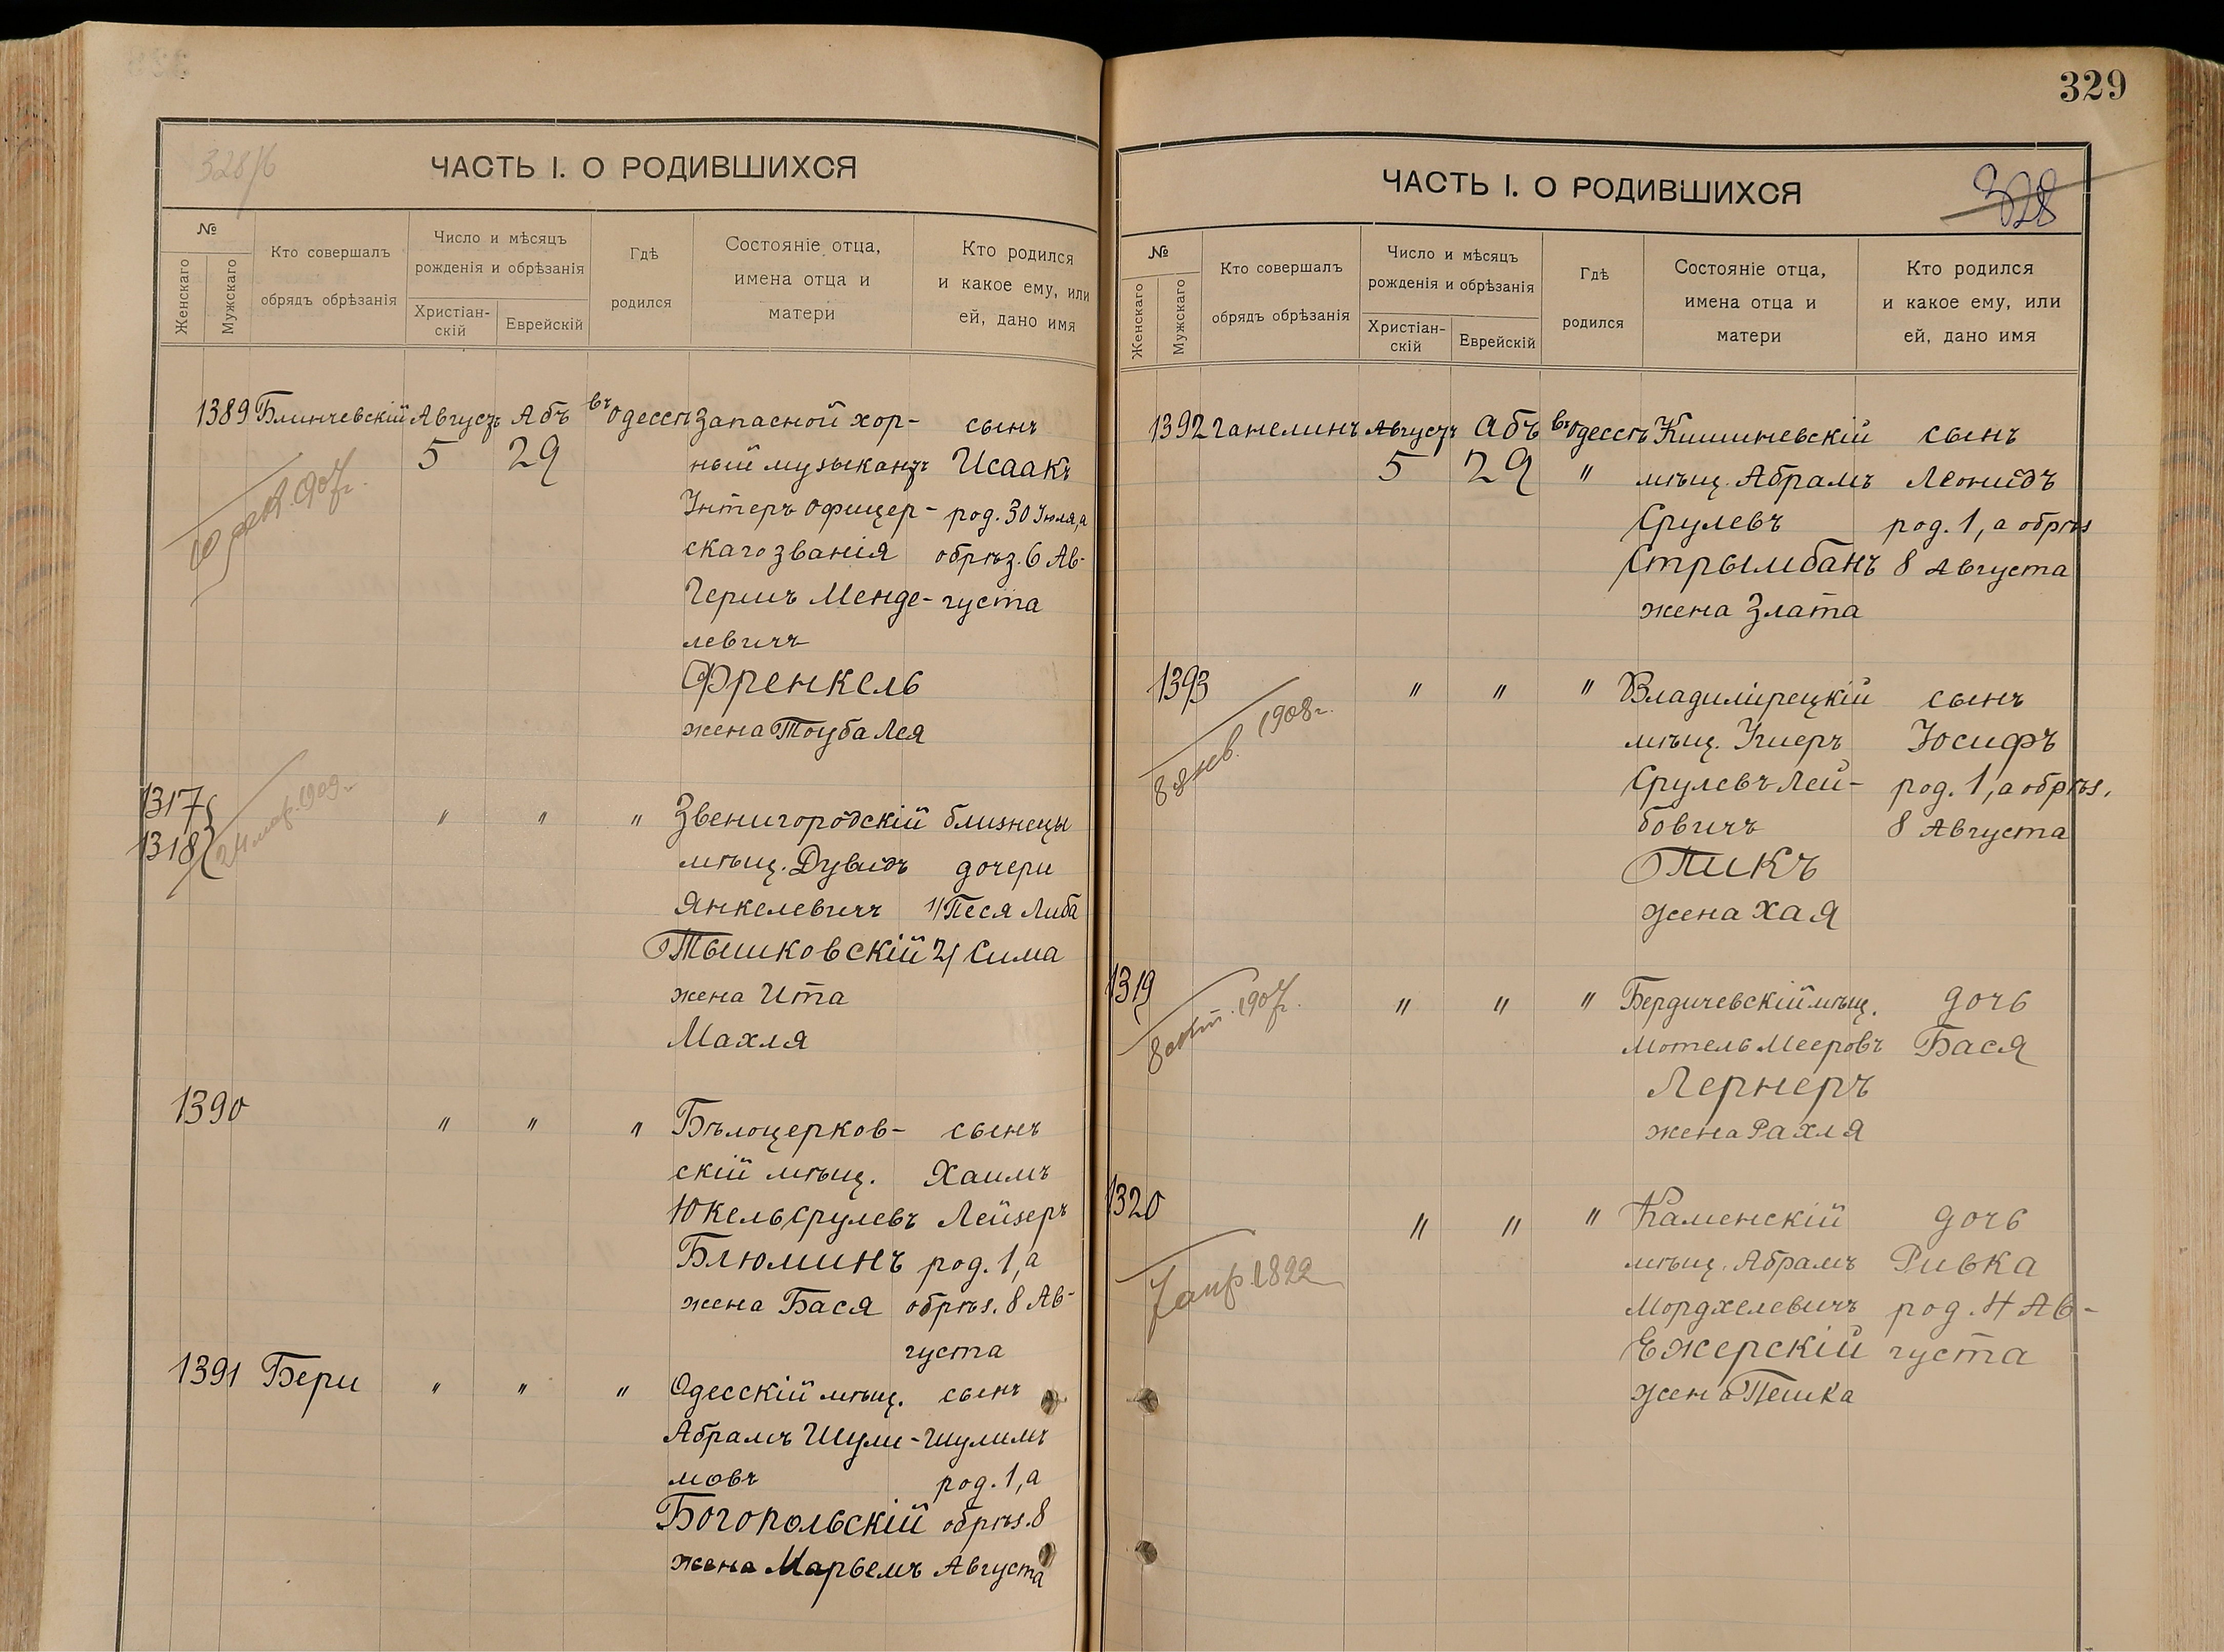 328/б
ЧАСТЬ I. О РОДИВШИХСЯ
№
Женскаго
Мужскаго
Кто совершалъ
обрядъ обрѣзанія
Число и мѣсяцъ
рожденія и обрѣзанія
Христіан-
скій
Еврейскій
Гдѣ
родился
Состояніе отца,
имена отца и
матери
Кто родился
и какое ему, или
ей, дано имя
1389 Блинчевскій Августъ Абъ въ Одессѣ Запасной хор- сынъ
5 29 ный музыкантъ Исаакъ
Унтеръ офицер- род. 30 Іюля, а
скаго званія обрѣз. 6 Ав-
Гершъ Менде- густа
левичъ
Френкель
жена Тоуба Лея
1317
1318 " " " Звенигородскій близнецы
24 мар. 1909 г.
мѣщ. Дувидъ дочери
Янкелевичъ 1/ Песя Либа
Тышковскій 2/ Сима
жена Ита
Махля
1390 " " " Бѣлоцерков- сынъ
скій мѣщ. Хаимъ
Юкель Срулевъ Лейзеръ
Блюминъ род. 1, а
жена Бася обрѣз. 8 Ав-
густа
1391 Бери " " " Одесскій мѣщ. сынъ
Абрамъ Шули- Шулимъ
мовъ род. 1, а
Богопольскій обрѣз. 8
жена Марьемъ Августа
329
328
ЧАСТЬ I. О РОДИВШИХСЯ
№
Женскаго
Мужскаго
Кто совершалъ
обрядъ обрѣзанія
Число и мѣсяцъ
рожденія и обрѣзанія
Христіан-
скій
Еврейскій
Гдѣ
родился
Состояніе отца,
имена отца и
матери
Кто родился
и какое ему, или
ей, дано имя
1392 Ганелинъ Августъ Абъ въ Одессѣ Кишиневскій сынъ
5 29 " мѣщ. Абрамъ Леонидъ
Срулевъ род. 1, а обрѣз
Стрымбанъ 8 Августа
жена Злата
1393 " " " Владимірецкій сынъ
8 янв. 1908 г.
мѣщ. Ушеръ Іосифъ
Срулевъ Лей- род. 1, а обрѣз.
бовичъ 8 Августа
Пикъ
жена Хая
1319 " " " Бердичевскій мѣщ. дочь
8 окт. 1907 г.
Мотель Мееровъ Бася
Лернеръ
жена Рахля
1320 " " " Каменскій дочь
7 апр 1922
мѣщ. Абрамъ Ривка
Мордхелевичъ род. 4 Ав-
Ежерскій густа
жена Пешка